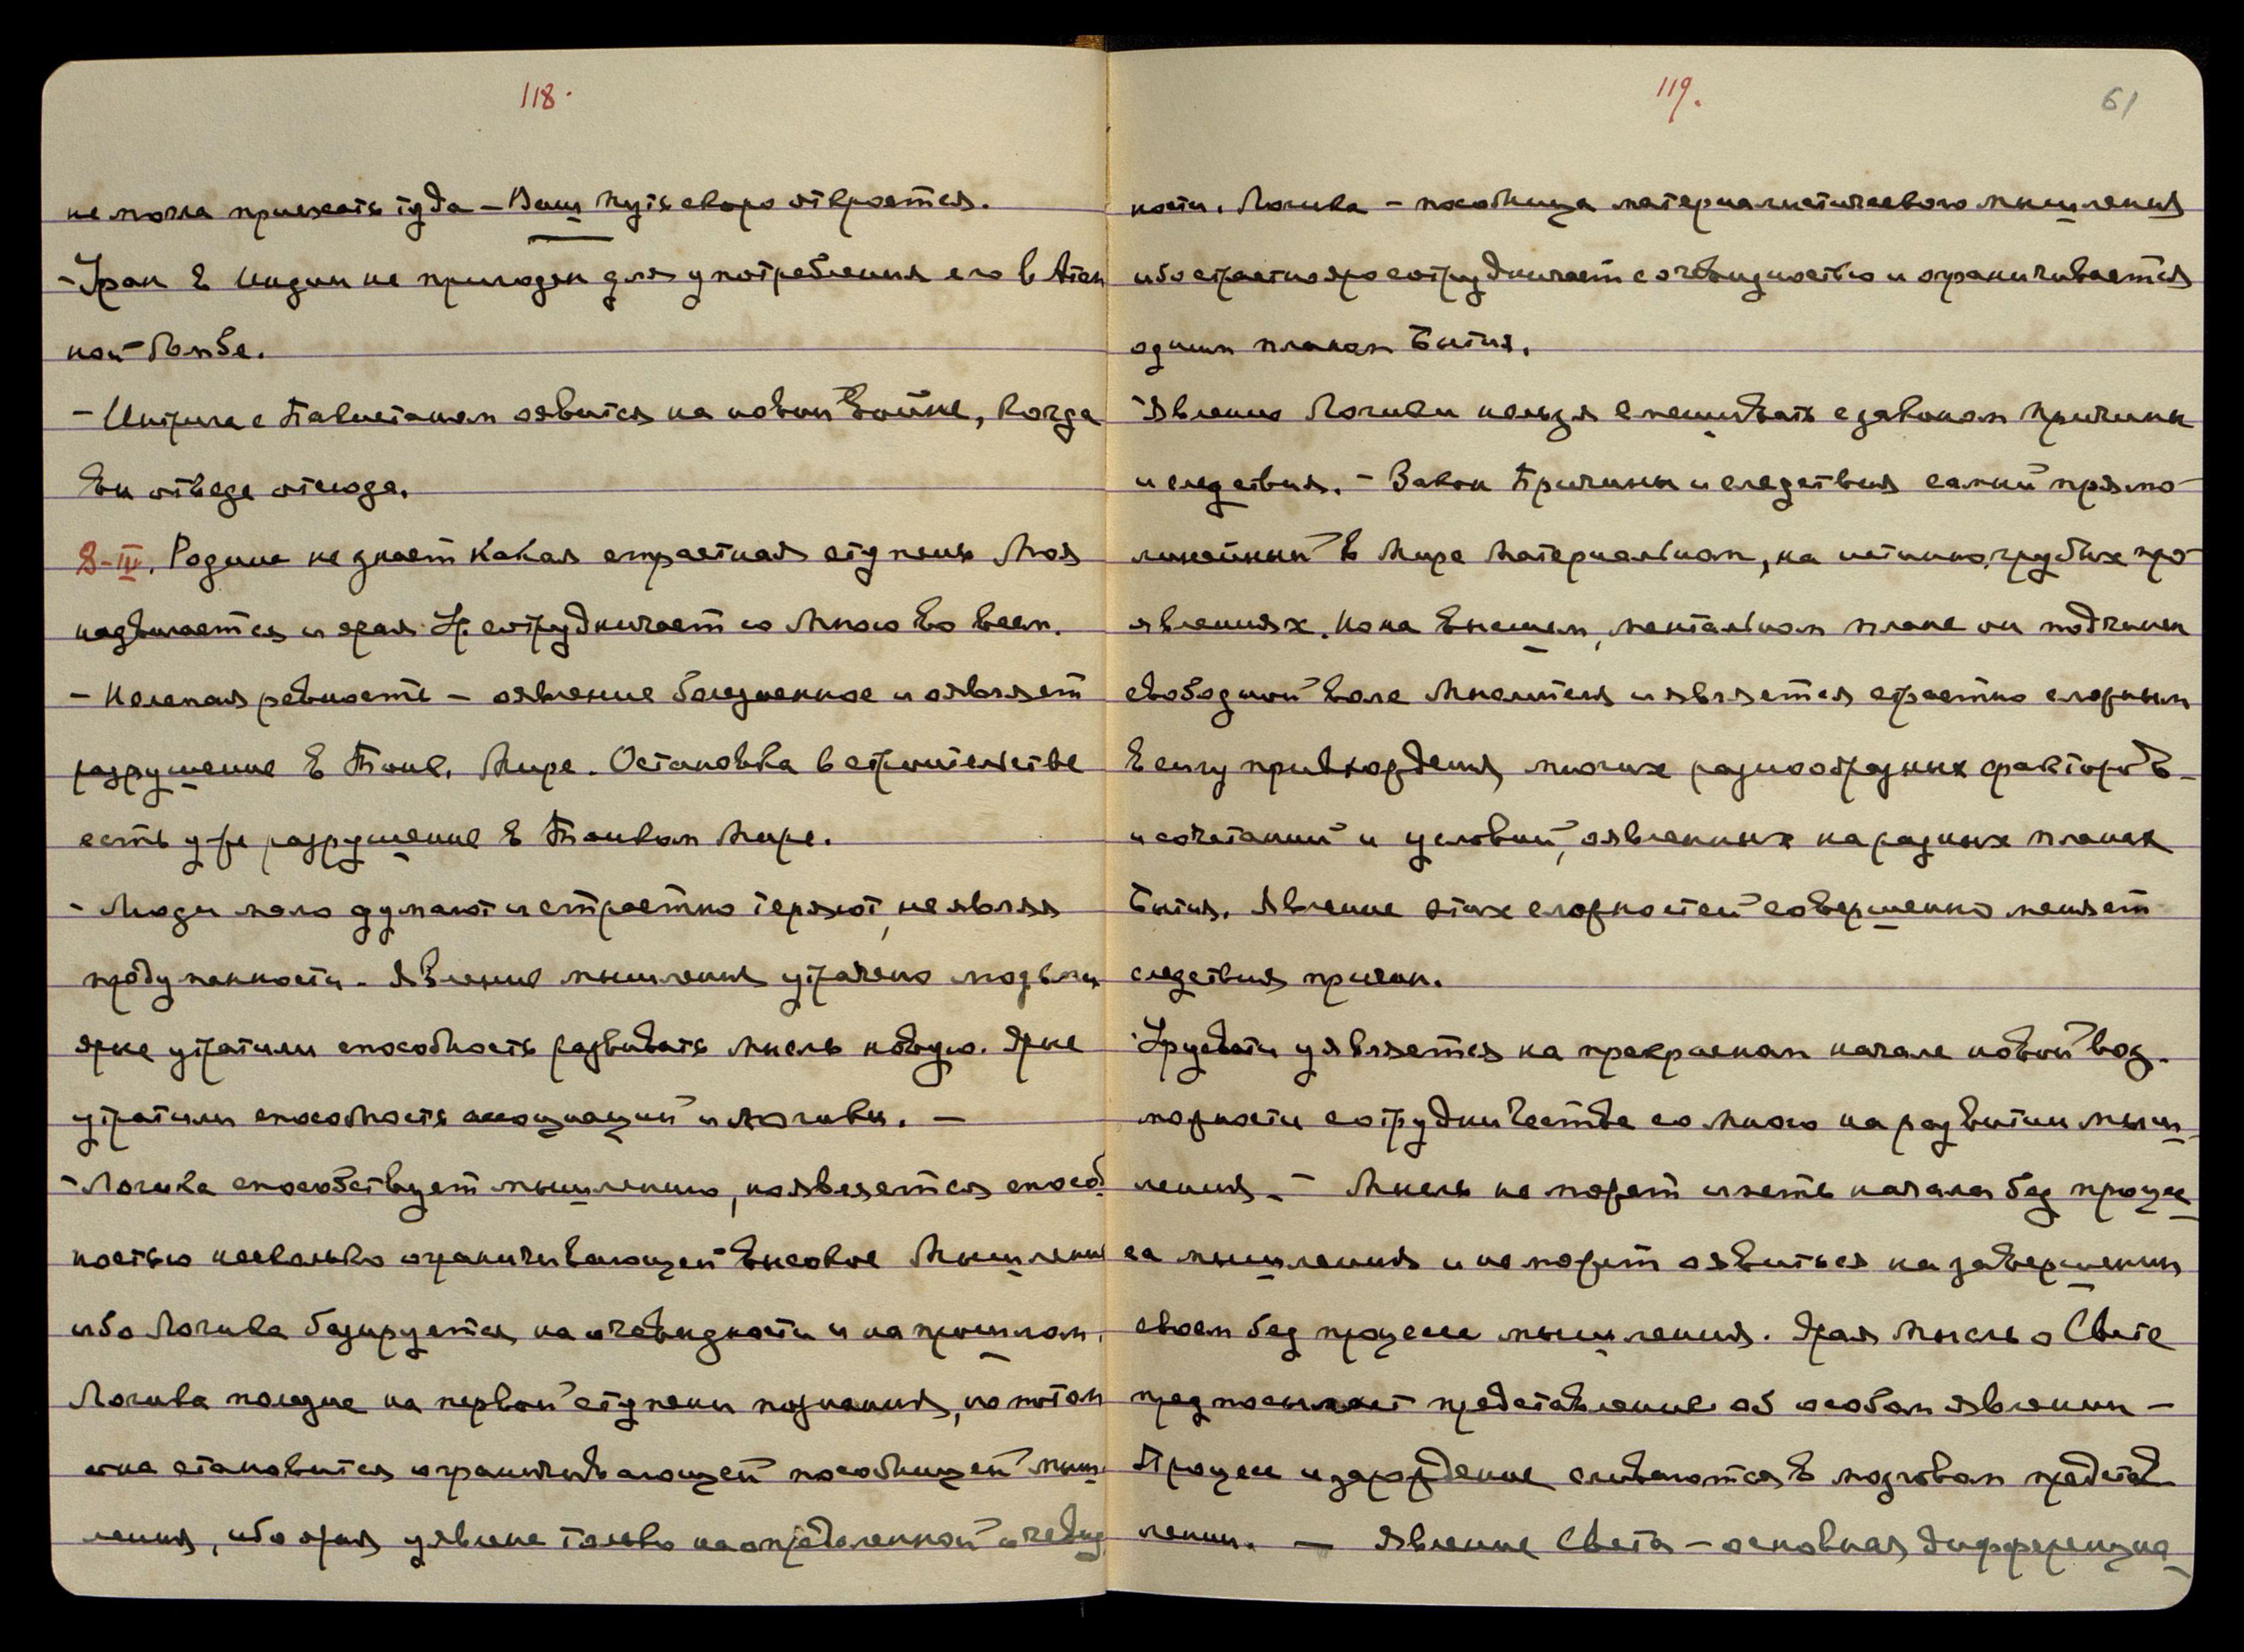 118.
не могла приехать туда – Ваш путь скоро откроется.
– Уран в Индии не пригоден для употребления его в Атом
ной бомбе.
– Интрига с Пакистаном оявится на новой войне, когда
Вы отсюда.
8-III. Родине не знает какая страстная ступень Моя
надвигается и ярая Ур. сотрудничает со Мною во всем.
– Нелепая ревность – оявление болезненное и оявляет
разрушение в Тонк. Мире. Остановка в строительстве
есть уже разрушение в Тонком Мире.
– Люди мало думают и страстно теряют, не являя
продуманности. Явление мышления утрачено людьми
ярые утратили способность развивать мысль новую. Ярые
утратили способность ассоциаций и логики. –
– Логика способствует мышлению, но является способ
ностью несколько ограничивающей высокое Мышление
ибо Логика базируется на очевидности и на прошлом.
Логика полезна на первой ступени познания, но потом
она становится ограничивающей пособницей мыш
ления, ибо ярая уявлена только на определенной очевид
119.
61
ности. Логика – пособница материалистического мышления
ибо страстно яро сотрудничает с очевидностью и ограничивается
одним планом Бытия.
Явление Логики нельзя смешивать с законом причины
и следствия. – Закон Причины и следствия самый прямо-
линейный в Мире Материальном, на истинно грубых про-
явлениях. Но на высшем, ментальном плане он подчинен
свободной воле Мыслителя и является страстно сложным
в силу привхождения многих разнообразных факторов –
и сочетаний и условий, оявленных на разных планах
Бытия. Явление этих сложностей совершенно меняет
следствия причин.
Урусвати уявляется на прекрасном начале новой воз-
можности сотрудничества со Мною на развитии мыш-
ления. – Мысль не может иметь начала без процес
са мышления и не может оявиться на завершении
своем без процесса мышления. Ярая мысль о Свете
предпосылает представление об особом явлении –
Процесс и зарождение сливаются в мозговом представ
лении. – Явление Света – основная дифференциа